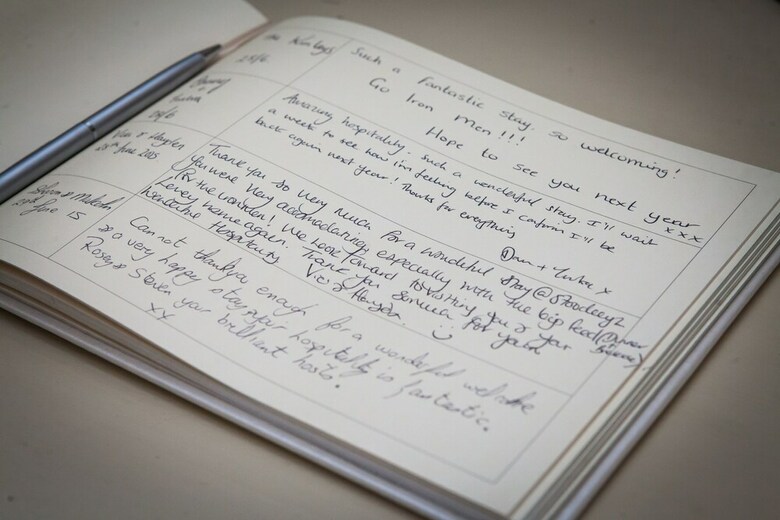 Such a Fantastic stay. So welcoming!
Go Iron Men!!!
Hope to see you next year
xxx
28/6
Amazing hospitality. Such a wonderful stay. I'll wait
a week to see how i'm feeling before I confirm I'll be
back again next year! Thanks for everything
x
28th June 2015
Thank you so very much for a wonderful stay @
You were very accomodating especially with the big feed
for the wonder! We look forward to visiting you & your
lovely home again. Thank you so much for your
Hospitality
June 15
Cannot thankyou enough for a wonderful welcome
& a very happy stay your hospitality is fantastic.
Rosey & Steven your brilliant hosts!
xx